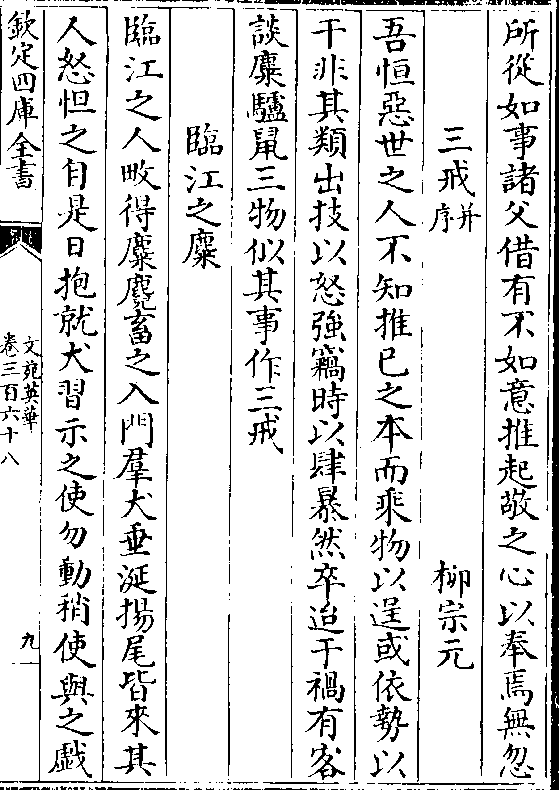 所從如事諸父借有不如意推起敬之心以奉焉無忽
三戒并序
柳宗元
吾恒惡世之人不知推已之本而乘物以逞或依勢以
干非其類出技以怒強竊時以肆暴然卒迨于禍有客
談麋驢鼠三物似其事作三戒
臨江之麋
臨江之人畋得麋麑畜之入門羣犬垂涎揚尾皆來其
人怒怛之自是日抱就犬習示之使勿動稍使與之戲
欽定四庫全書
文苑英華
卷三百六十八
九